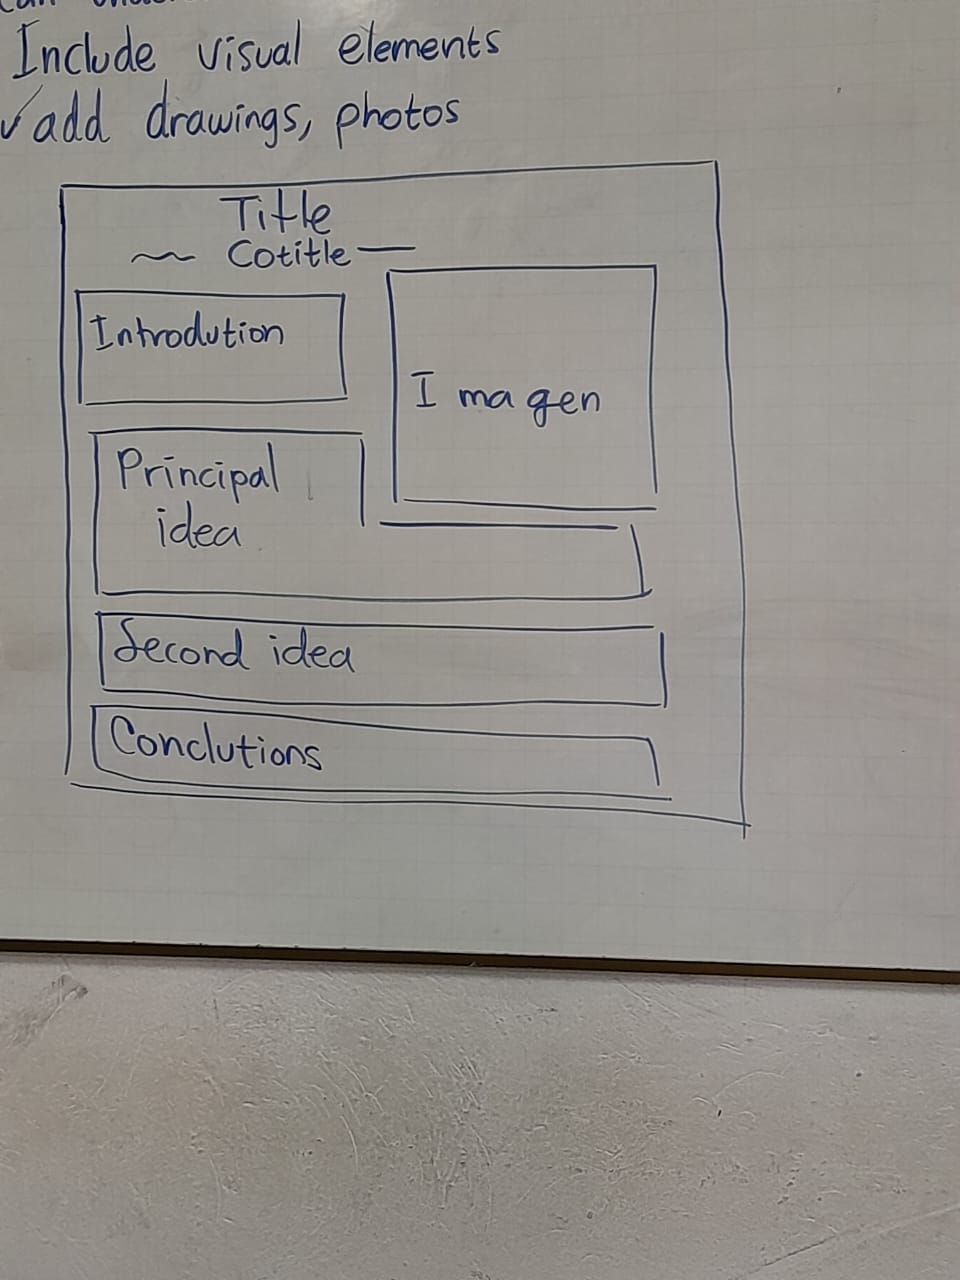 Include visual elements
✓add drawings, photos
Title
Cotitle
Introdution
Imagen
Principal
idea
Second idea
Conclutions